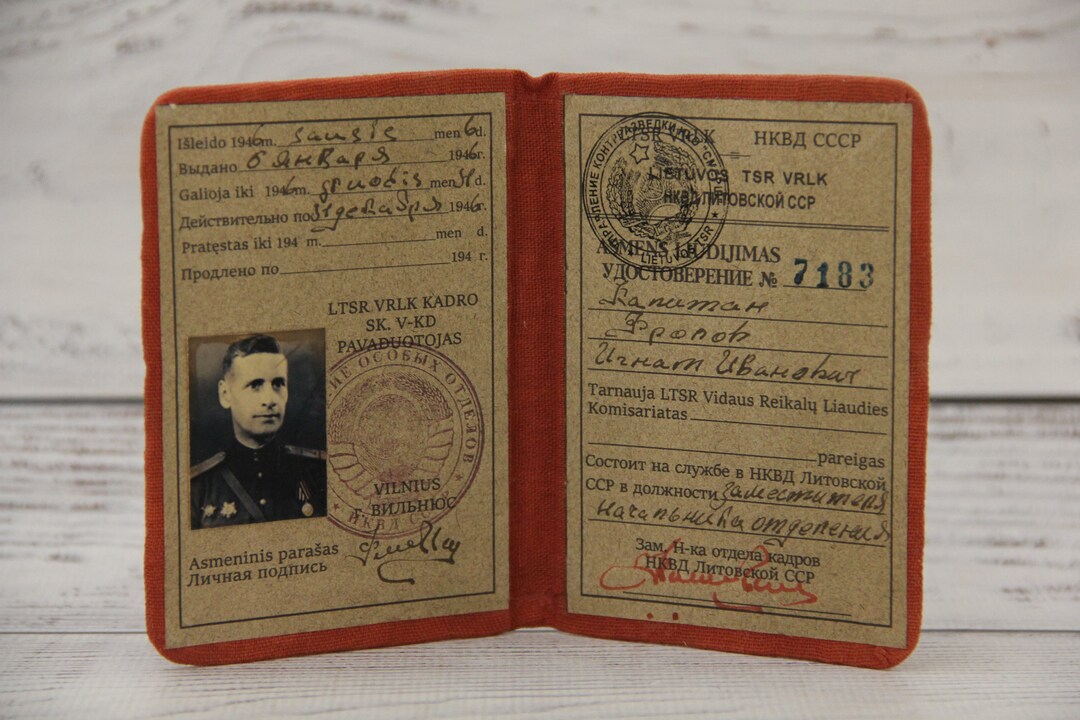 Išleido 1946 m. sausis men 6 d.
Выдано 6 января 1946 г.
Galioja iki 1946 m. gruodis men 31 d.
Действительно по 31 декабря 1946 г.
Pratęstas iki 194 m. men d.
Продлено по 194 г.
LTSR VRLK KADRO
SK. V-KD
PAVADUOTOJAS
ИЕ ОСОБЫХ ОТДЕЛОВ
НКВД С
VILNIUS
ВИЛЬНЮС
Asmeninis parašas
Личная подпись
LTSR VRLK НКВД СССР
УПРАВЛЕНИЕ КОНТРРАЗВЕДКИ НКО "СМЕРШ"
LIETUVOS TSR
LIETUVOS TSR VRLK
НКВД ЛИТОВСКОЙ ССР
ASMENS LIUDIJIMAS
УДОСТОВЕРЕНИЕ № 7183
Капитан
Фролов
Игнат Иванович
Tarnauja LTSR Vidaus Reikalų Liaudies
Komisariatas
pareigas
Состоит на службе в НКВД Литовской
ССР в должности заместителя
начальника отделения
Зам. Н-ка отдела кадров
НКВД Литовской ССР